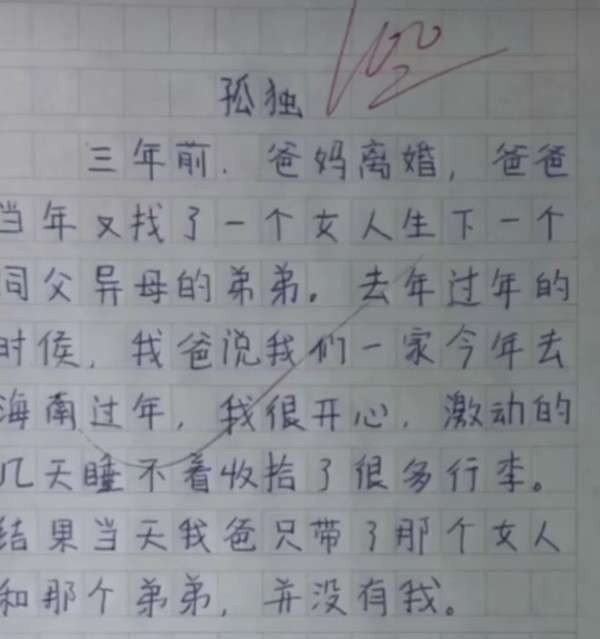 100
孤独
三年前，爸妈离婚，爸爸
当年又找了一个女人生下一个
同父异母的弟弟。去年过年的
时候，我爸说我们一家今年去
海南过年，我很开心，激动的
几天睡不着收拾了很多行李。
结果当天我爸只带了那个女人
和那个弟弟，并没有我。